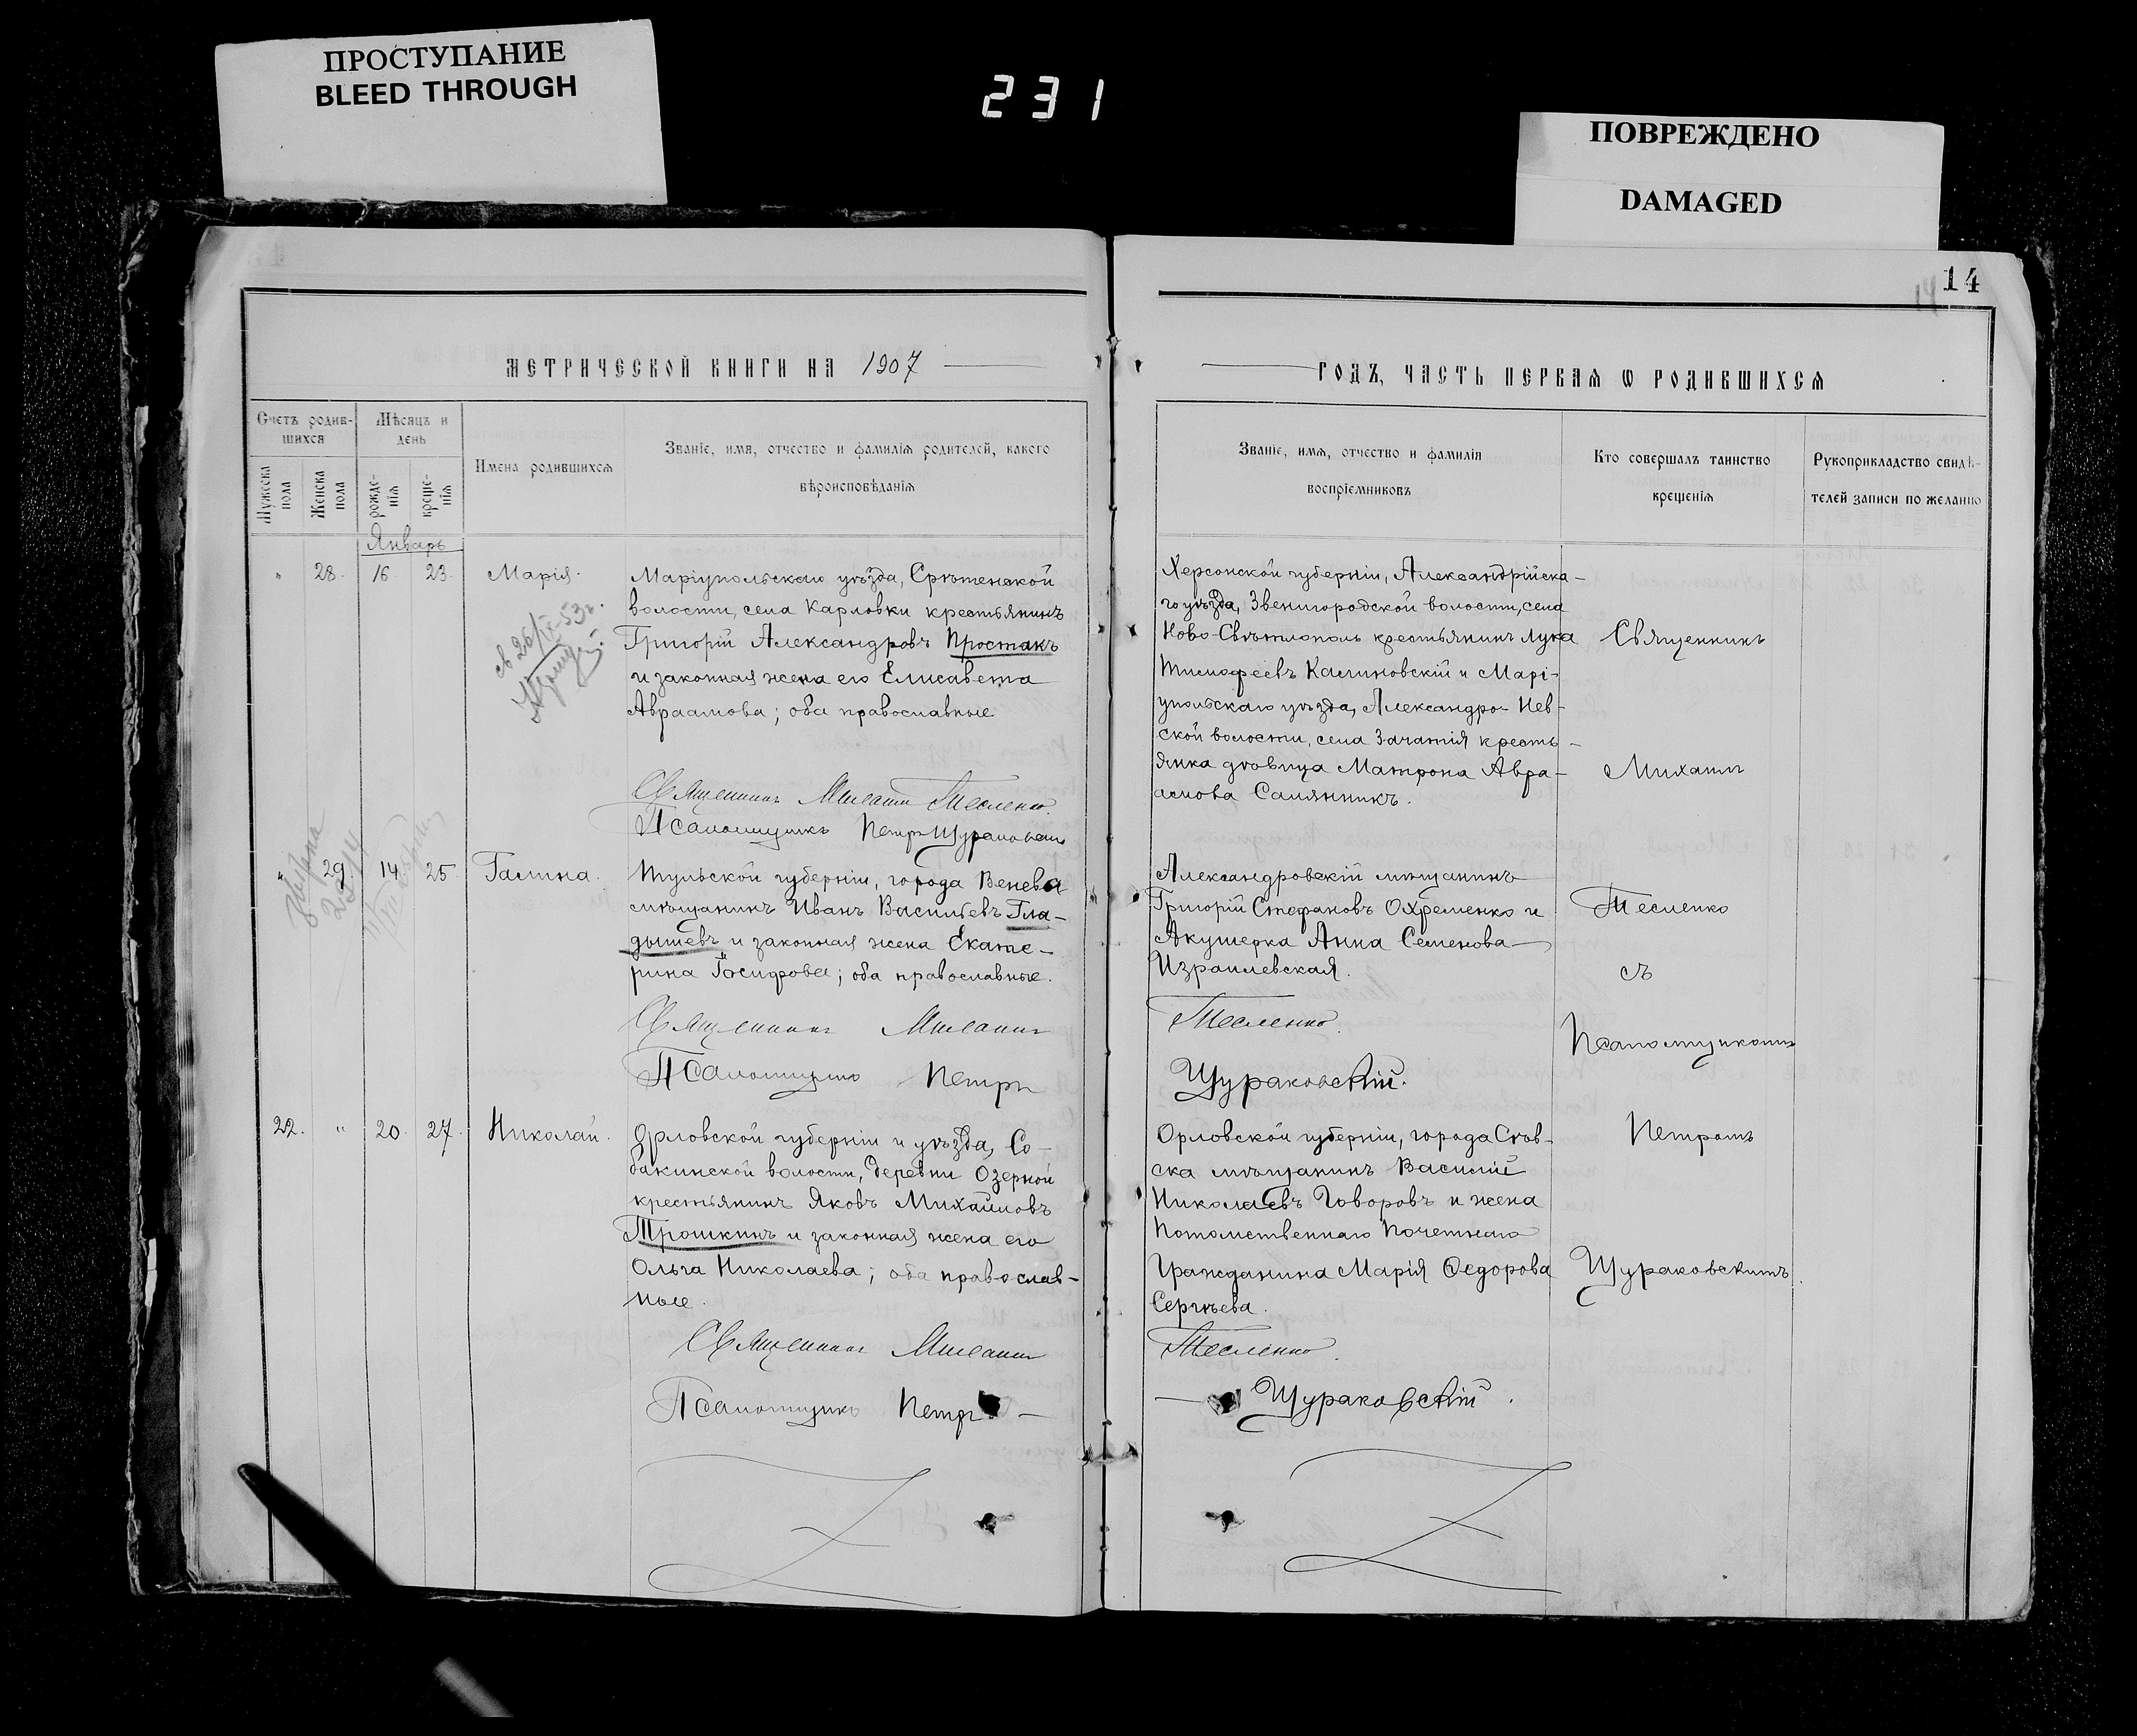 ПРОСТУПАНИЕ
BLEED THROUGH
231
ПОВРЕЖДЕНО
DAMAGED
14
14
МЕТРИЧЕСКОЙ КНИГИ НА 1907
Счетъ родив-
шихся
Мѣсяцъ и
день
Мужеска
пола
Женска
пола
рожде-
нія
креще-
нія
Имена родившихся
Званіе, имя, отчество и фамилія родителей, какого
вѣроисповѣданія
Январь
" 28. 16. 23. Марія.
Маріупольскаго уѣзда, Срѣтенской
волости, села Карловки крестьянинъ
Григорій Александровъ Простакъ
и законная жена его Елисавета
Авраамова; оба православные
св 26/IX-53г.
Священникъ Михаилъ Тесленко
Псаломщикъ Петръ Щураковскій
" 29. 14. 25. Галина.
Тульской губерніи, города Венева
мѣщанинъ Иванъ Васильевъ Гла-
дышевъ и законная жена Екате-
рина Іосифова; оба православные.
Священникъ Михаилъ
Псаломщикъ Петръ
22. " 20. 27. Николай.
Орловской губерніи и уѣзда, Со-
бакинской волости, деревни Озерной
крестьянинъ Яковъ Михайловъ
Трошкинъ и законная жена его
Ольга Николаева; оба православ-
ные.
Священникъ Михаилъ
Псаломщикъ Петръ —
ГОДЪ, ЧАСТЬ ПЕРВАЯ Ѡ РОДИВШИХСЯ
Званіе, имя, отчество и фамилія
воспріемниковъ
Кто совершалъ таинство
крещенія
Рукоприкладство свидѣ-
телей записи по желанію
Херсонской губерніи, Александрійска-
го уѣзда, Звенигородской волости, села
Ново-Свѣтлополь крестьянинъ Лука
Тимофеевъ Калиновскій и Марі-
упольскаго уѣзда, Александро-Нев-
ской волости, села Зачатія кресть-
янка дѣвица Матрона Авра-
амова Саплянникъ.
Александровскій мѣщанинъ
Григорій Стефановъ Охременко и
Акушерка Анна Семенова
Израилевская.
Тесленко.
Щураковскій.
Орловской губерніи, города Сѣв-
ска мѣщанинъ Василій
Николаевъ Говоровъ и жена
Потомственнаго Почетнаго
Гражданина Марія Ѳедорова
Сергѣева.
Тесленко.
— Щураковскій.
Священникъ
Михаилъ
Тесленко
съ
Псаломщикомъ
Петромъ
Щураковскимъ.